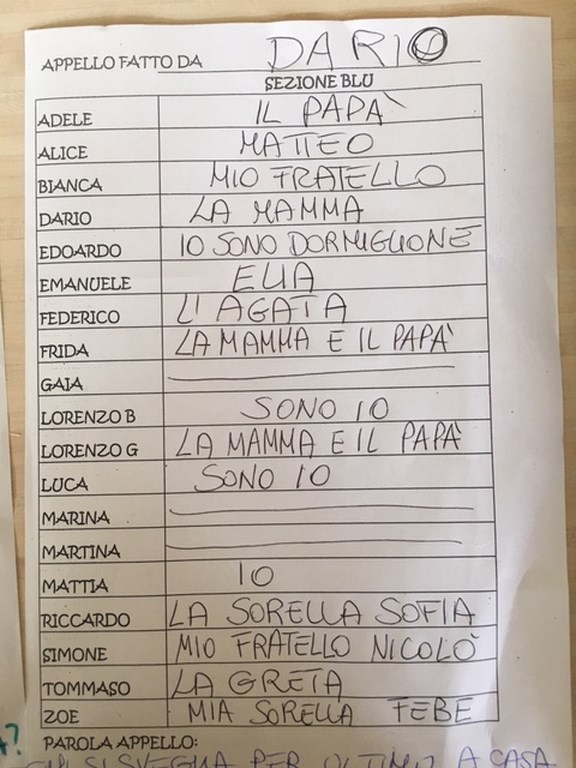 APPELLO FATTO DA DARIO
SEZIONE BLU
ADELE IL PAPÀ
ALICE MATTEO
BIANCA MIO FRATELLO
DARIO LA MAMMA
EDOARDO IO SONO DORMIGLIONE
EMANUELE ELIA
FEDERICO L'AGATA
FRIDA LA MAMMA E IL PAPÀ
GAIA
LORENZO B SONO IO
LORENZO G LA MAMMA E IL PAPÀ
LUCA SONO IO
MARINA
MARTINA
MATTIA IO
RICCARDO LA SORELLA SOFIA
SIMONE MIO FRATELLO NICOLÒ
TOMMASO LA GRETA
ZOE MIA SORELLA FEBE
PAROLA APPELLO:
CHI SI SVEGLIA PER ULTIMO A CASA